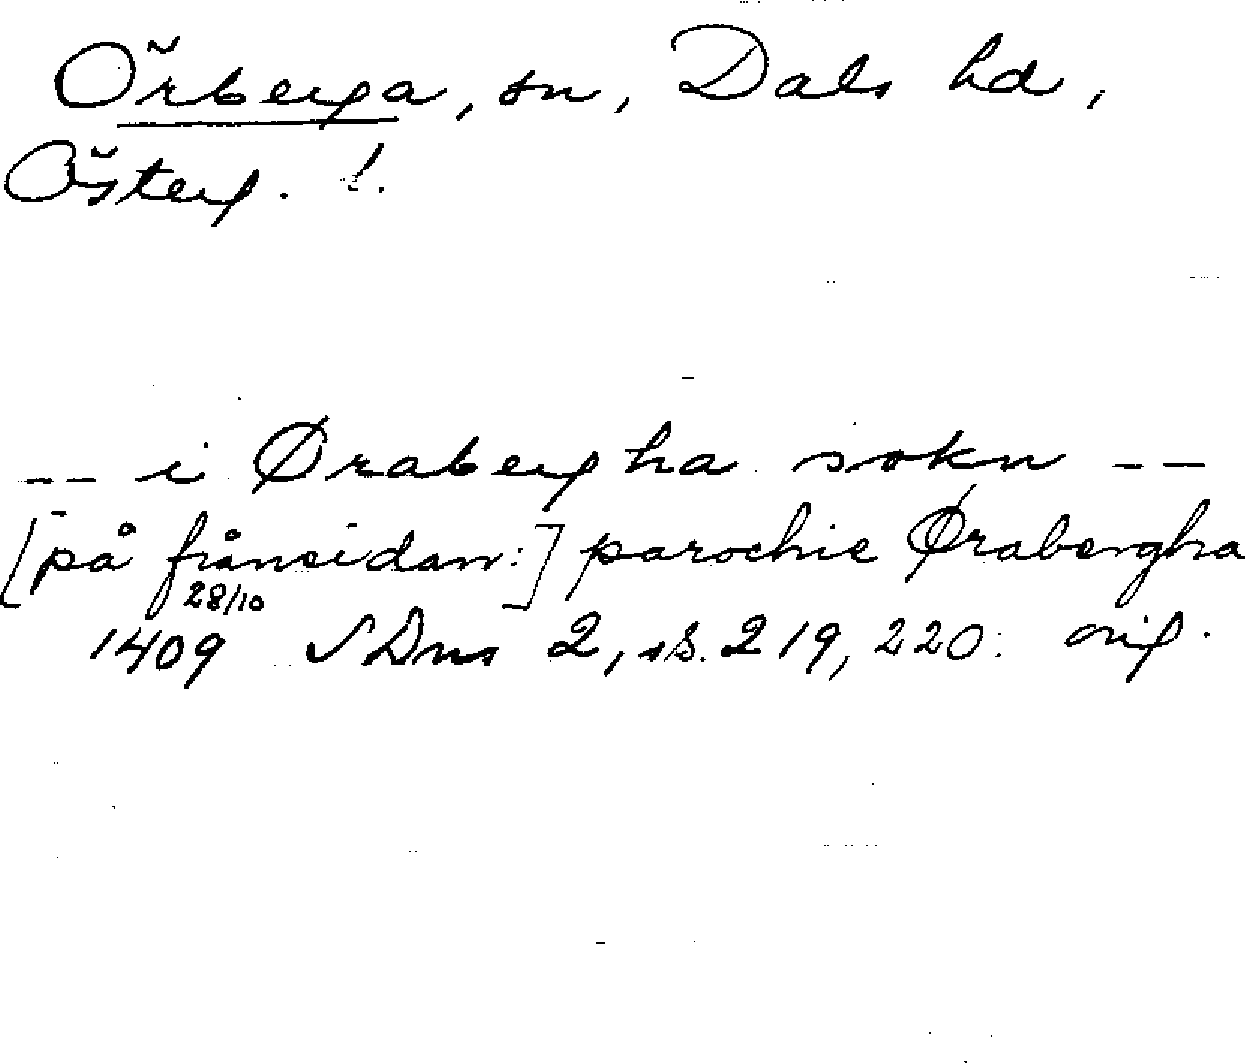 Örberga, sn, Dals hd,
Österg. !.
-- i Ørabergha sokn --
[på frånsidan:] parochie Ørabergha
28/10
1409 SDns 2, ss. 219, 220. orig.